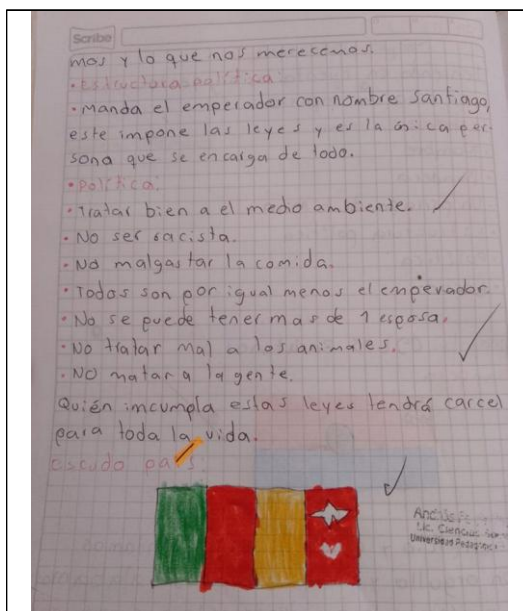 Scribe
mos y lo que nos merecemos.
• Estructura política
• Manda el emperador con nombre santiago,
este impone las leyes y es la única per-
sona que se encarga de todo.
• Política.
• Tratar bien a el medio ambiente.
• No ser racista.
• No malgastar la comida.
• Todos son por igual menos el emperador.
• No se puede tener mas de 1 esposa.
• No tratar mal a los animales.
• NO matar a la gente.
Quién imcumpla estas leyes tendrá carcel
para toda la vida.
escudo país.
Lic. Ciencias
Universidad Pedagógica